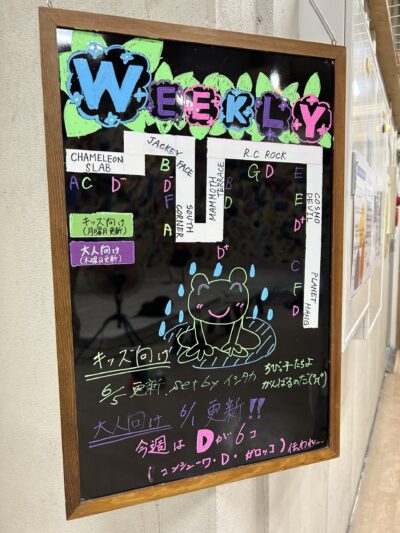 WEEKLY
CHAMELEON
SLAB
JACKEY
FACE
SOUTH
CORNER
MAMMOTH
TERRACE
R.C. ROCK
COSMO
DEVIL
PLANET HANG
A C D-
B
D-
F
A
B
D
D+
G D
E
E
D+
C
F
D
キッズ向け
(月曜日更新)
大人向け
(木曜日更新)
キッズ向け
6/5 更新 set by イシタカ
ちびっ子たちよ
がんばるのだ
大人向け 6/1 更新!!
今週は Dが6コ
(コンシューワ・D・ガロッコ) 伝われ...